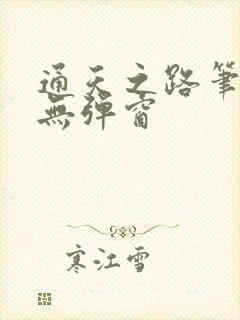 通天之路筆
無彈窗
寒江雪